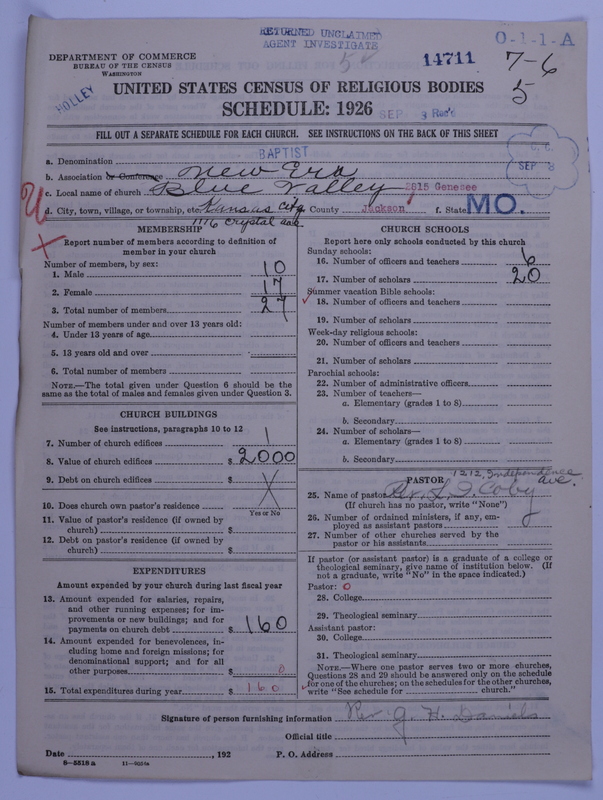 RETURNED UNCLAIMED
AGENT INVESTIGATE
O-1-1-A
DEPARTMENT OF COMMERCE
BUREAU OF THE CENSUS
WASHINGTON
14711
7-6
5
HOLLEY
UNITED STATES CENSUS OF RELIGIOUS BODIES
SCHEDULE: 1926
SEP 3 Rec'd
FILL OUT A SEPARATE SCHEDULE FOR EACH CHURCH. SEE INSTRUCTIONS ON THE BACK OF THIS SHEET
a. Denomination BAPTIST
SEP 3
b. Association or Conference New Era
c. Local name of church Blue Valley 2815 Genesee
d. City, town, village, or township, etc. Kansas City e. County Jackson f. State MO.
1116 Crystal ave
MEMBERSHIP
Report number of members according to definition of member in your church
Number of members, by sex:
1. Male 10
2. Female 17
3. Total number of members 27
Number of members under and over 13 years old:
4. Under 13 years of age
5. 13 years old and over
6. Total number of members
NOTE.—The total given under Question 6 should be the same as the total of males and females given under Question 3.
CHURCH BUILDINGS
See instructions, paragraphs 10 to 12
7. Number of church edifices 1
8. Value of church edifices $2000
9. Debt on church edifices $
10. Does church own pastor's residence X
Yes or No
11. Value of pastor's residence (if owned by church) $
12. Debt on pastor's residence (if owned by church) $
EXPENDITURES
Amount expended by your church during last fiscal year
13. Amount expended for salaries, repairs, and other running expenses; for improvements or new buildings; and for payments on church debt $160
14. Amount expended for benevolences, including home and foreign missions; for denominational support; and for all other purposes $ 0
15. Total expenditures during year $ 160
CHURCH SCHOOLS
Report here only schools conducted by this church
Sunday schools:
16. Number of officers and teachers 6
17. Number of scholars 20
Summer vacation Bible schools:
18. Number of officers and teachers
19. Number of scholars
Week-day religious schools:
20. Number of officers and teachers
21. Number of scholars
Parochial schools:
22. Number of administrative officers
23. Number of teachers—
a. Elementary (grades 1 to 8)
b. Secondary
24. Number of scholars—
a. Elementary (grades 1 to 8)
b. Secondary
PASTOR 1212 Independence ave.
25. Name of pastor Rev. L. I. Coby
(If church has no pastor, write "None")
26. Number of ordained ministers, if any, employed as assistant pastors
27. Number of other churches served by the pastor or his assistants
If pastor (or assistant pastor) is a graduate of a college or theological seminary, give name of institution below. (If not a graduate, write "No" in the space indicated.)
Pastor: 0
28. College
29. Theological seminary
Assistant pastor:
30. College
31. Theological seminary
NOTE.—Where one pastor serves two or more churches, Questions 28 and 29 should be answered only on the schedule for one of the churches; on the schedules for the other churches, write "See schedule for church."
Signature of person furnishing information Rev J. H. Daniels
Official title
Date , 192 P. O. Address
8-5518 a 11-9054a